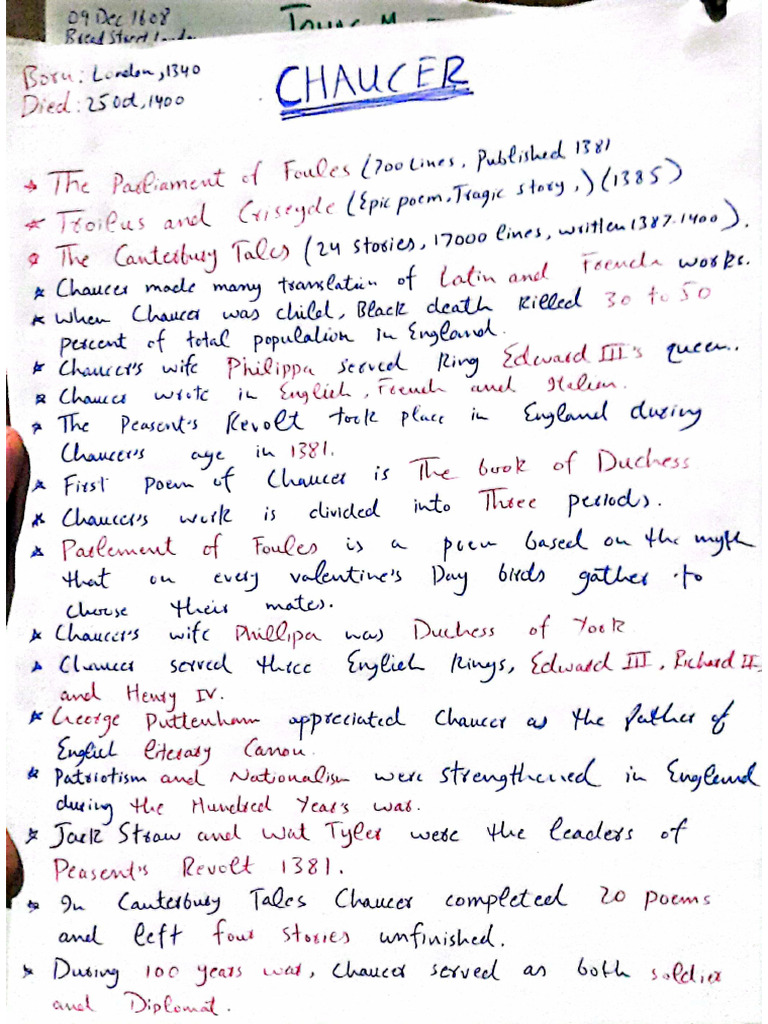 09 Dec 1608
Bread Street London
Born: London, 1340
Died: 25 Oct, 1400
CHAUCER
The Parliament of Foules (700 Lines, Published 1381
Troilus and Criseyde (Epic poem, Tragic story,) (1385)
The Canterbury Tales (24 stories, 17000 lines, written 1387-1400).
Chaucer made many translation of Latin and French works.
When Chaucer was child, Black death killed 30 to 50
percent of total population in England.
Chaucer's wife Philippa served King Edward III's queen.
Chaucer wrote in English, French and Italian.
The Peasent's Revolt took place in England during
Chaucer's age in 1381.
First poem of Chaucer is The book of Duchess
Chaucer's work is divided into Three periods.
Parlement of Foules is a poem based on the myth
that on every valentine's Day birds gather to
choose their mates.
Chaucer's wife Phillipa was Duchess of York
Chaucer served three English Kings, Edward III, Richard II,
and Henry IV.
George Puttenham appreciated Chaucer as the father of
English literary Canon.
Patriotism and Nationalism were strengthened in England
during the Hundred Year's war.
Jack Straw and Wat Tyler were the leaders of
Peasent's Revolt 1381.
In Canterbury Tales Chaucer completed 20 poems
and left four stories unfinished.
During 100 years war, Chaucer served as both soldier
and Diplomat.